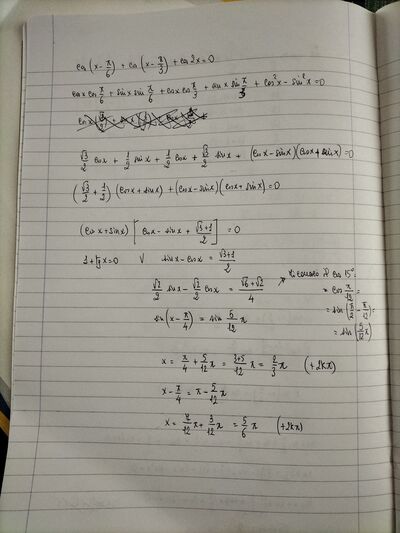 cos(x-π/6) + cos(x-π/3) + cos2x=0
cosx cos π/6 + sinx sin π/6 + cosx cos π/3 + sinx sin π/3 + cos²x - sin²x=0
√3/2 cosx + 1/2 sinx + 1/2 cosx + √3/2 sinx + (cosx-sinx)(cosx+sinx)=0
(√3/2 + 1/2)(cosx+sinx) + (cosx-sinx)(cosx+sinx)=0
(cosx+sinx)[cosx-sinx + √3+1/2] =0
1+tgx=0 V sinx-cosx = √3+1/2
√2/2 sinx - √2/2 cosx = √6+√2/4
il cos 15°
= cos π/12 =
= sin(π/2 - π/12)=
= sin(5/12 π)
sin(x-π/4) = sin 5/12 π
x = π/4 + 5/12 π = 3+5/12 π = 2/3 π (+2kπ)
x-π/4 = π - 5/12 π
x = 7/12 π + 3/12 π = 5/6 π (+2kπ)